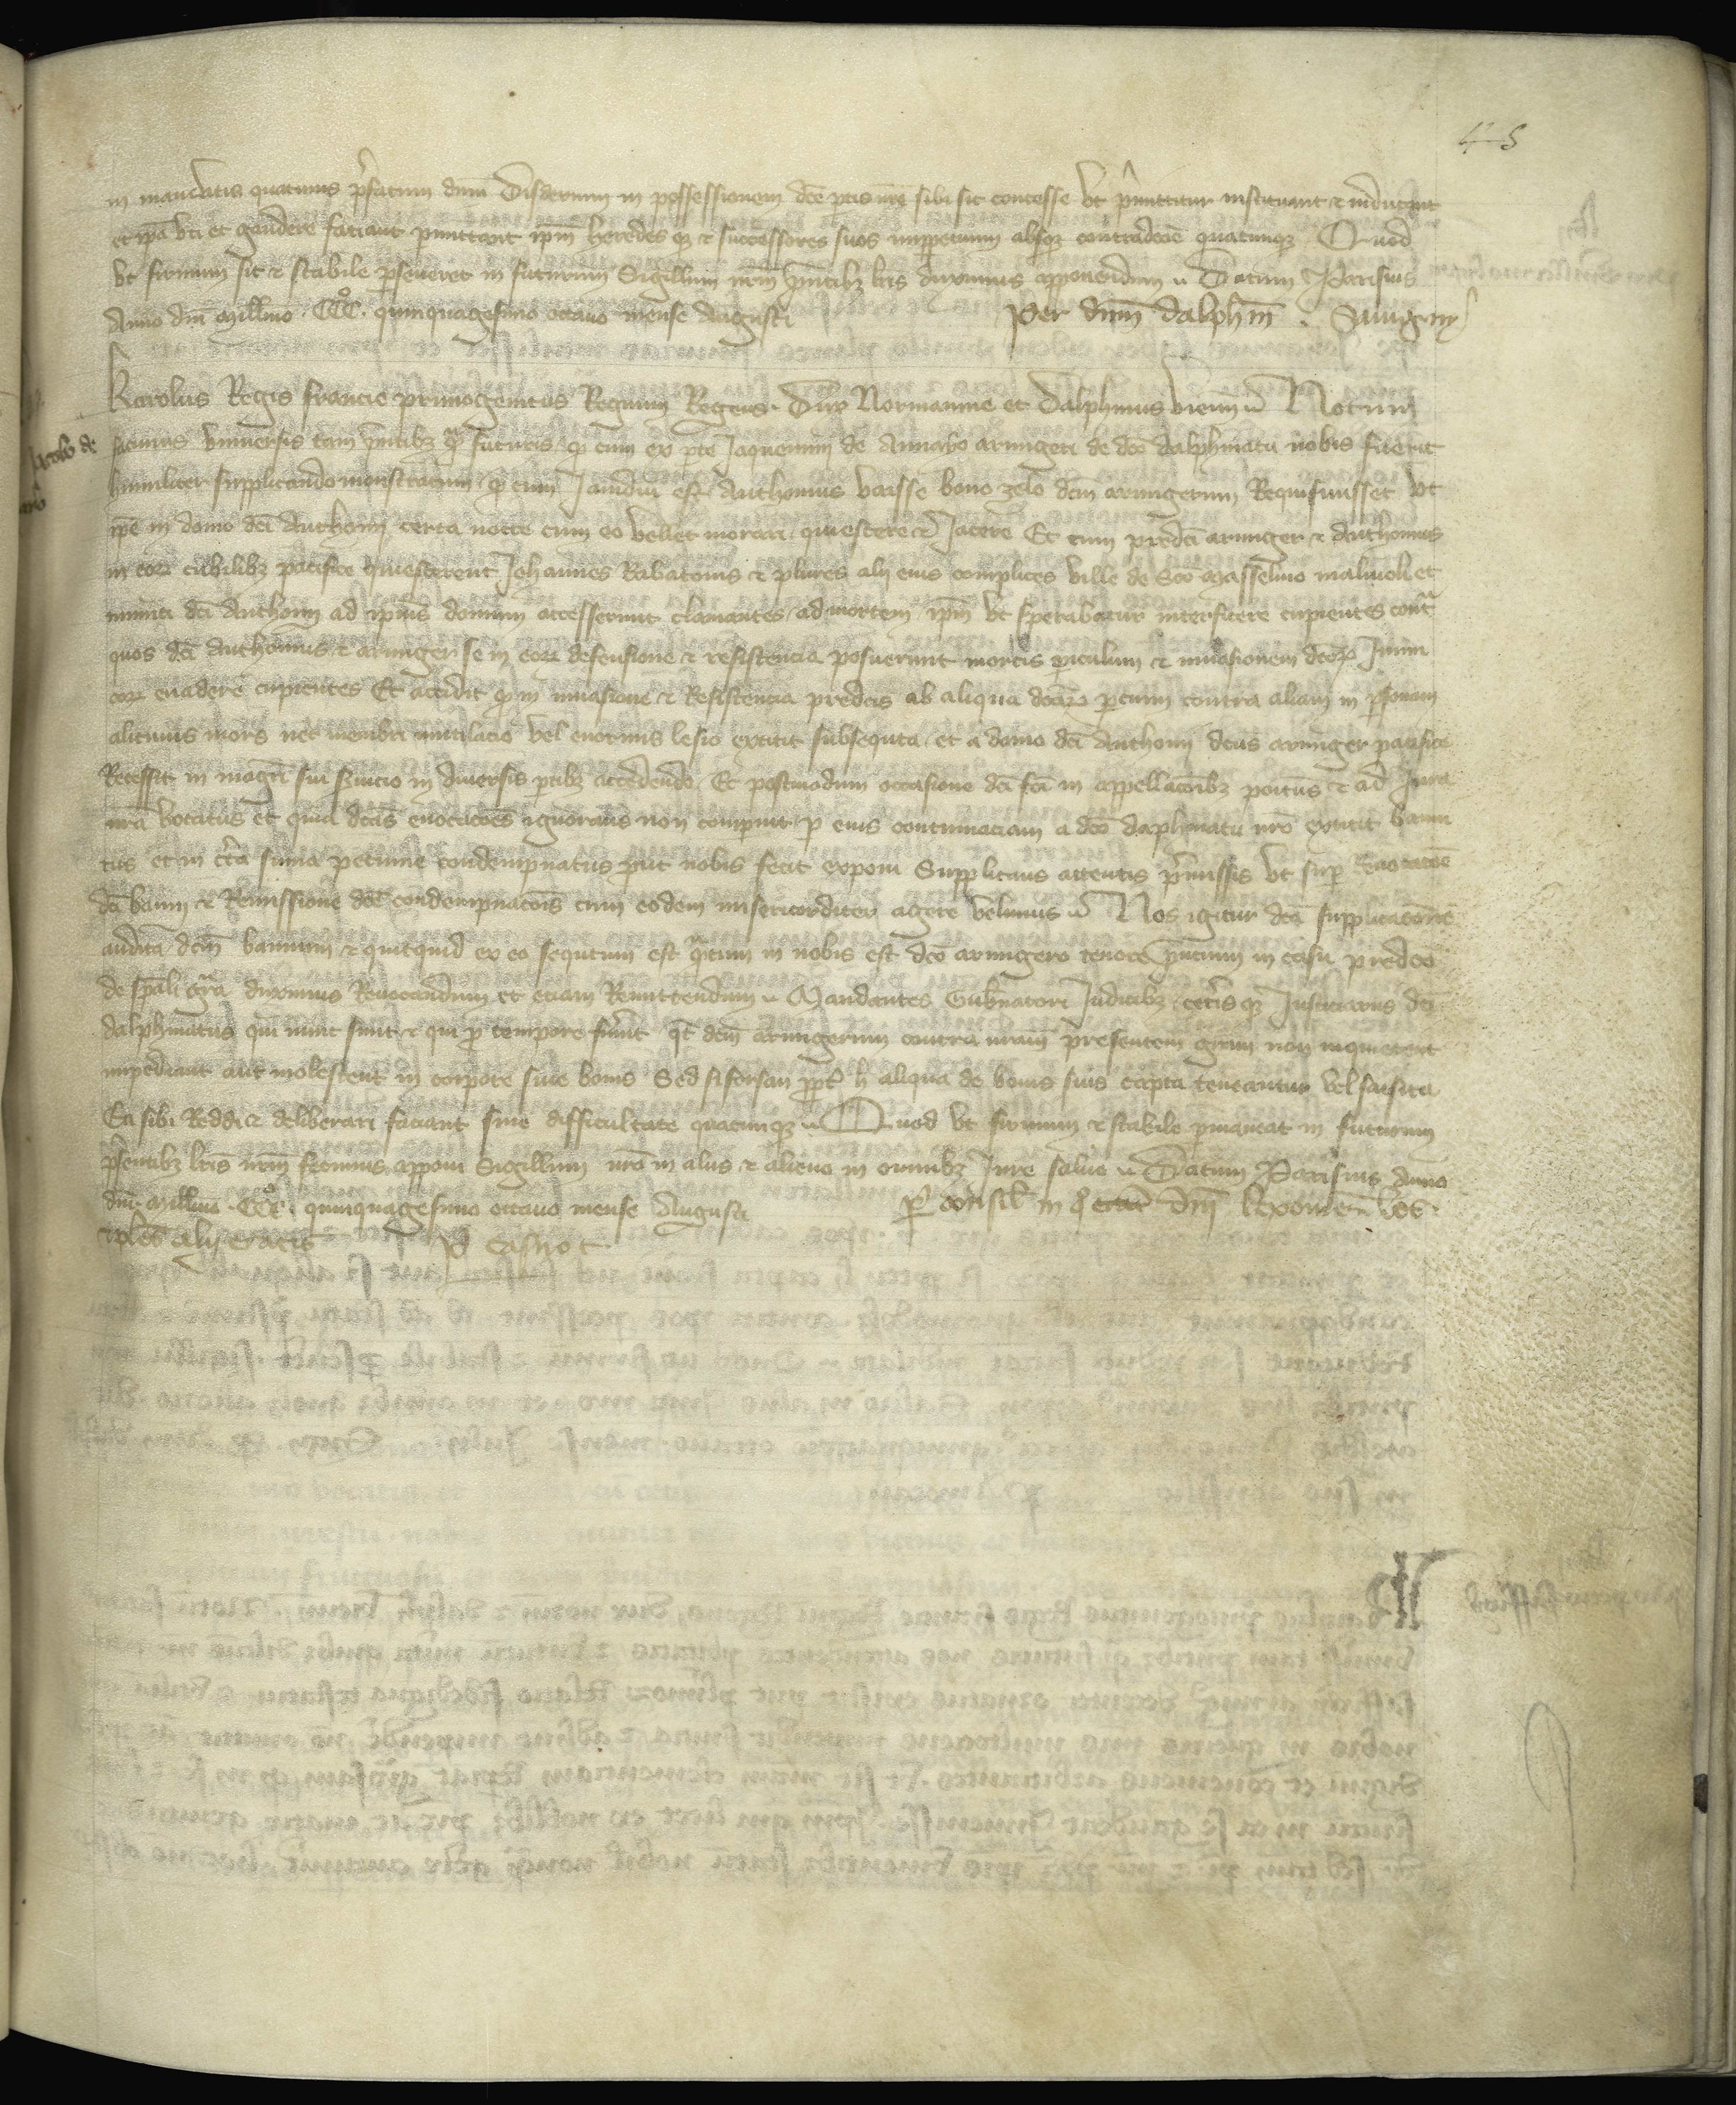 45
in mandatis quatinus p̄fatum dnm̄ Disderium in possessionem dcē ptis nr̄e sibi sic concesse vt p̄mittitur instituant & inducant
et ip̄a vti et gaudere faciant pmittant ip̄m heredes qȝ & successores suos imppetuum absqȝ contradcōe quacunqȝ Quod
vt firmum sit & stabile p̱seueret in futurum Sigillum nr̄m p̄ntibȝ lr̄is duximus apponendum Datum Parisius
Anno dnī Millīmo CCC°. quinquagesimo octauo mense Augusti Per dnm̄ dalphm̄
Karolus Regis francie primogenitus Regnum Regens Dux Normannie et Dalphinus vienn̄ Notum
Jacobo de
facimus vniuersis tam p̄ntibȝ qͣ futuris q̱ cum ex p̱te Jaquemini de armigeri de dcō dalphinatu nobis fuerit
humiliter supplicando monstratum q̱ cum Jamdiu est Anthonius vaisse bono zelo dcm̄ armigerum Requisiuisset vt
ip̄e in domo dcī Anthonij certa nocte cum eo vellet morari quiescere & Jacere Et cum predcī armiger & Anthonius
in eoꝝ cubilibȝ pacifice quiescerent Johannes Rabatonis & plures alij eius complices ville de Sco Marsselino maliuoli et
inimici dcī Anthonij ad ip̄ius domum accesserunt clamantes ad mortem ip̄m vt sperabatur interficere cupientes contͣ
quos dcī Anthonius & armiger se in eoꝝ defensione & resistencia posuerunt mortis p̱iculum & inuasionem dcōꝝ Inim
coꝝ euadere cupientes Et accidit q̱ in inuasione & Resistencia predcīs ab aliqua dcāꝝ p̱cium contra aliam in p̱sonam
alicuius mors nec membri mutilacio vel enormis lesio extitit subsequta et a domo dcī Anthonij dcūs armiger pacifice
Recessit in magrī sui s̱uicio in diuersis p̱tibȝ accedendo Et postmodum occasione dcī fcī in appellacōibȝ positus & ad Jura
nr̄a vocatus et quia dcās euocacōes ignorans non comparuit p̱ eius contumaciam a dcō dalphinatu nr̄o extitit banni
tus et in cr̄ta suma pecunie condempnatus put nobis fecit exponi Supplicans attentis p̄missis vt sup̱ reuocacōe
dcī banni & Remissione dcē condempnacōis cum eodem misericorditer agere velimus Nos igitur dcā supplicacōne
audita dcm̄ bannum & quitquid ex eo sequtum est qͣtum in nobis est dcō armigero tenore p̄ntium in casu predcō
de spāli grā duximus Reuocandum et etiam Remittendum Mandantes Guḇnatori Judicibȝ cetis qȝ Justiciariis dcī
dalphinatus qui nunc sunt & qui p̱ tempore fuerint qt̄ dcm̄ armigerum contra nr̄am presentem grām non inquietent
impediant aut molestent in corpore siue bonis Sed si forsan ppt̄ h̄ aliqua de bonis suis capta teneantur vel saisita
Ea sibi Reddi & deliberari faciant sine difficultate quacunqȝ Quod vt firmum & stabile p̱maneat in futurum
p̄sentibȝ lr̄is nr̄m fecimus apponi Sigillum nr̄o in aliis & alieno in omnibȝ Jure saluo Datum Parisius Anno
dnī Millīmo CCC°. quinquagesimo octauo mense Augusti P̱ consil̄ in q° dnī Lexouien̄
& plēs alij eratis